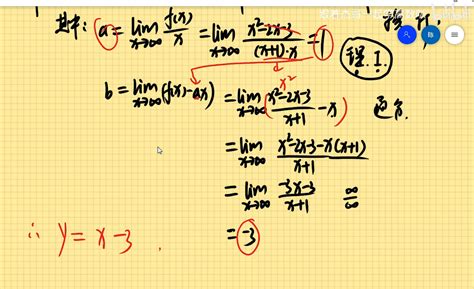 其中: a = lim x→∞ f(x)/x = lim x→∞ x²-2x-3/(x+1)·x = 1
x²
b = lim x→∞ (f(x)-ax) = lim x→∞ (x²-2x-3/x+1 - x) 通分.
= lim x→∞ x²-2x-3-x(x+1)/x+1
= lim x→∞ -3x-3/x+1 ∞/∞
∴ y = x-3. = -3